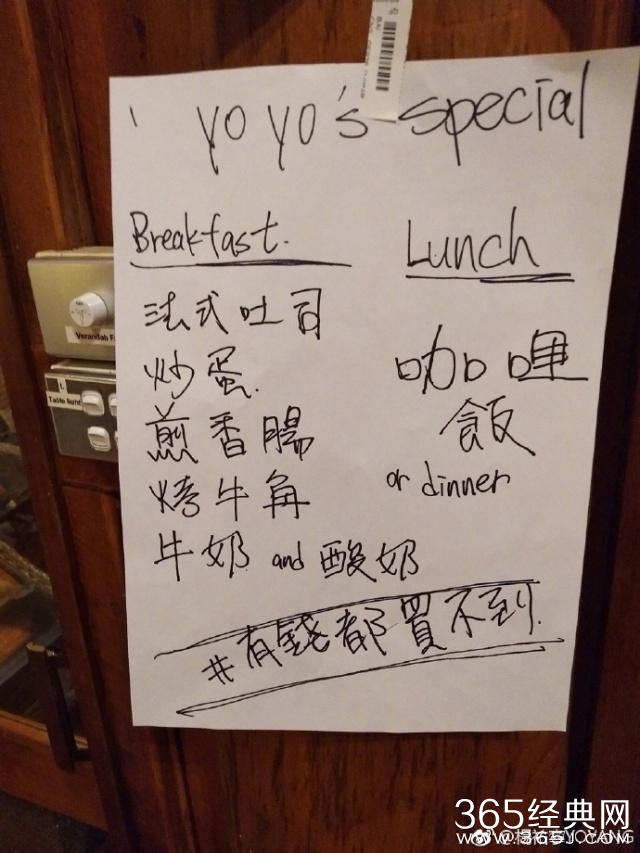 yo yo's special
Breakfast.
法式吐司
炒蛋.
煎香腸
烤牛角
牛奶 and 酸奶
Lunch
咖喱
飯
or dinner
#有錢都買不到.
Verandah F
1.
Table light
365经典网
WWW.365J.COM
YOYANG